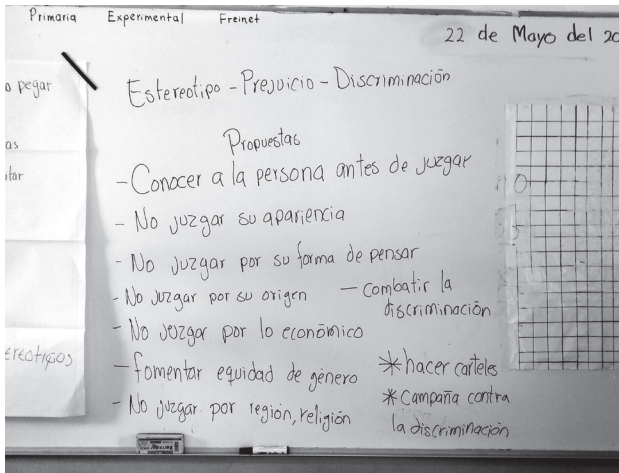 Primaria Experimental Freinet
22 de Mayo del 20
o pegar
as
tar
ereotipos
Estereotipo - Prejuicio - Discriminación
Propuestas
- Conocer a la persona antes de juzgar
- No juzgar su apariencia
- No juzgar por su forma de pensar
- No juzgar por su origen
- No juzgar por lo económico
- fomentar equidad de género
- No juzgar por región, religión
- combatir la
discriminación
* hacer carteles
* Campaña contra
la discriminación